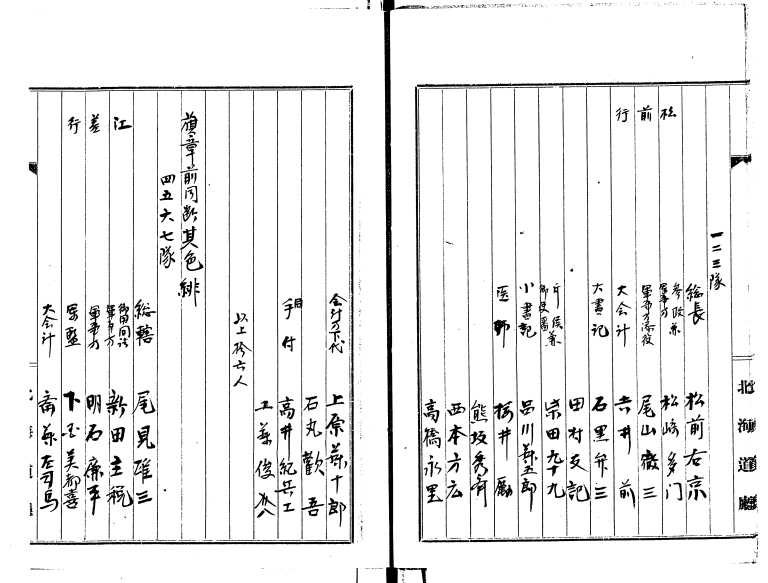 一二三隊
松前行
総長 松前右京
参政兼軍事方 松崎多門
軍事方添役 尾山徹三
大会計 吉井前
大書記 石黒弁三
田村友記
斤候兼御使番 柴田九十九
小書記 品川藤五郎
医師 桜井勵
熊坂秀斉
西本方広
高橋永里
北海道廳
会計方下代 上原藤十郎
石丸歓吾
同手付 高井紀兵工
工藤俊
以上拾六人
旗章前同断其色緋
四五六七隊
江差行
総轄 尾見雄三
御用同訳軍事方 新田主税
軍事方 明石廉平
軍監 下国美都喜
大会計 斎藤左司馬